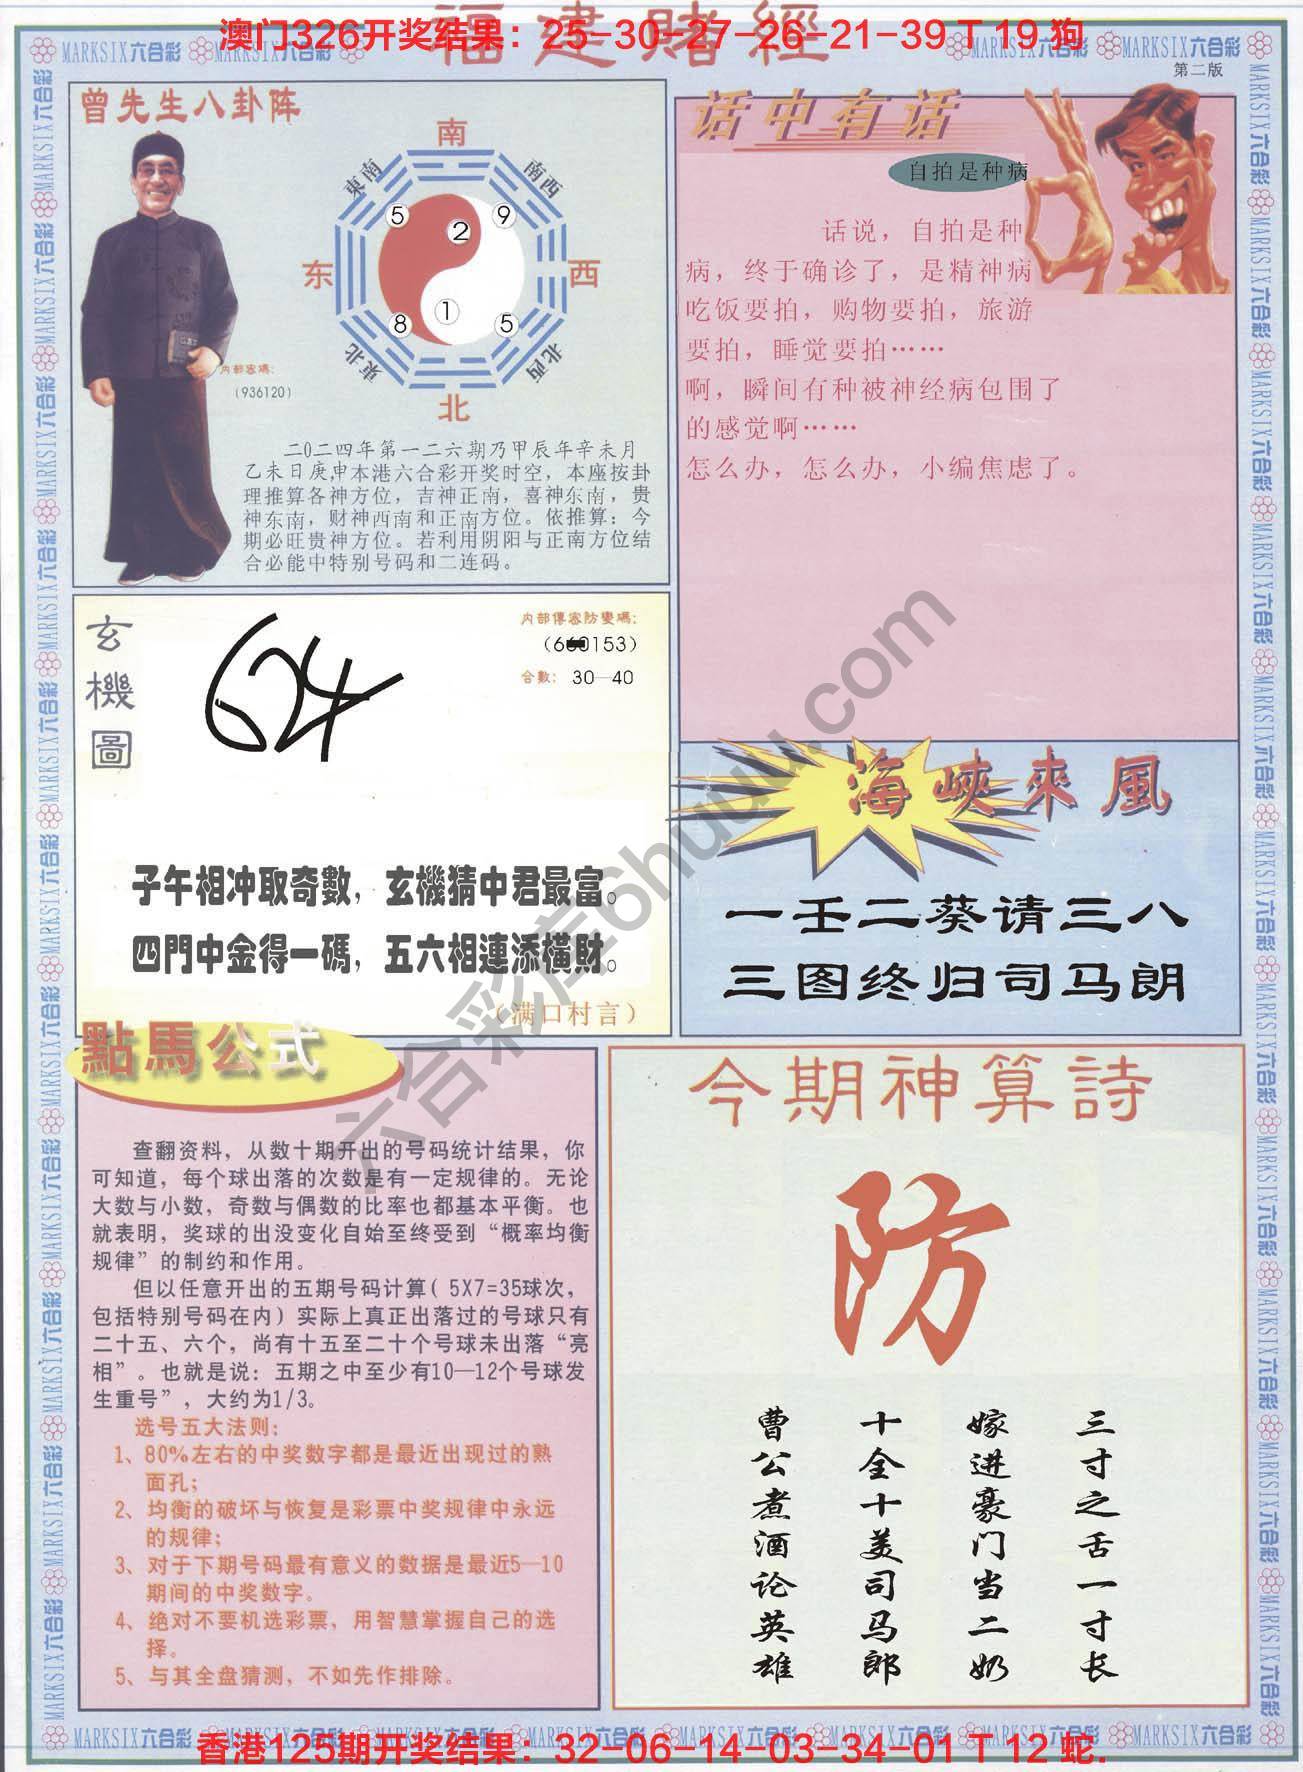 福建賭經
澳门326开奖结果：25-30-27-26-21-39 T 19 狗
MARKSIX六合彩
第二版
曾先生八卦阵
南
東南
南西
5
2
9
东
西
8
1
5
東北
北西
北
内部密碼：
（936120）
二〇二四年第一二六期乃甲辰年辛未月
乙未日庚申本港六合彩开奖时空，本座按卦
理推算各神方位，吉神正南，喜神东南，贵
神东南，财神西南和正南方位。依推算：今
期必旺贵神方位。若利用阴阳与正南方位结
合必能中特别号码和二连码。
话中有话
自拍是种病
话说，自拍是种
病，终于确诊了，是精神病
吃饭要拍，购物要拍，旅游
要拍，睡觉要拍……
啊，瞬间有种被神经病包围了
的感觉啊……
怎么办，怎么办，小编焦虑了。
玄機圖
内部傳密防變碼：
（660153）
合數：30—40
624
子午相冲取奇數，玄機猜中君最富。
四門中金得一碼，五六相連添橫財。
（满口村言）
海峽來風
一壬二葵请三八
三图终归司马朗
點馬公式
查翻资料，从数十期开出的号码统计结果，你
可知道，每个球出落的次数是有一定规律的。无论
大数与小数，奇数与偶数的比率也都基本平衡。也
就表明，奖球的出没变化自始至终受到“概率均衡
规律”的制约和作用。
但以任意开出的五期号码计算( 5X7=35球次，
包括特别号码在内）实际上真正出落过的号球只有
二十五、六个，尚有十五至二十个号球未出落“亮
相”。也就是说：五期之中至少有10—12个号球发
生重号”，大约为1/3。
选号五大法则：
1、80%左右的中奖数字都是最近出现过的熟
面孔；
2、均衡的破坏与恢复是彩票中奖规律中永远
的规律；
3、对于下期号码最有意义的数据是最近5—10
期间的中奖数字。
4、绝对不要机选彩票，用智慧掌握自己的选
择。
5、与其全盘猜测，不如先作排除。
今期神算詩
防
三寸之舌一寸长
嫁进豪门当二奶
十全十美司马郎
曹公煮酒论英雄
六合彩库6huuu.com
香港125期开奖结果：32-06-14-03-34-01 T 12 蛇.